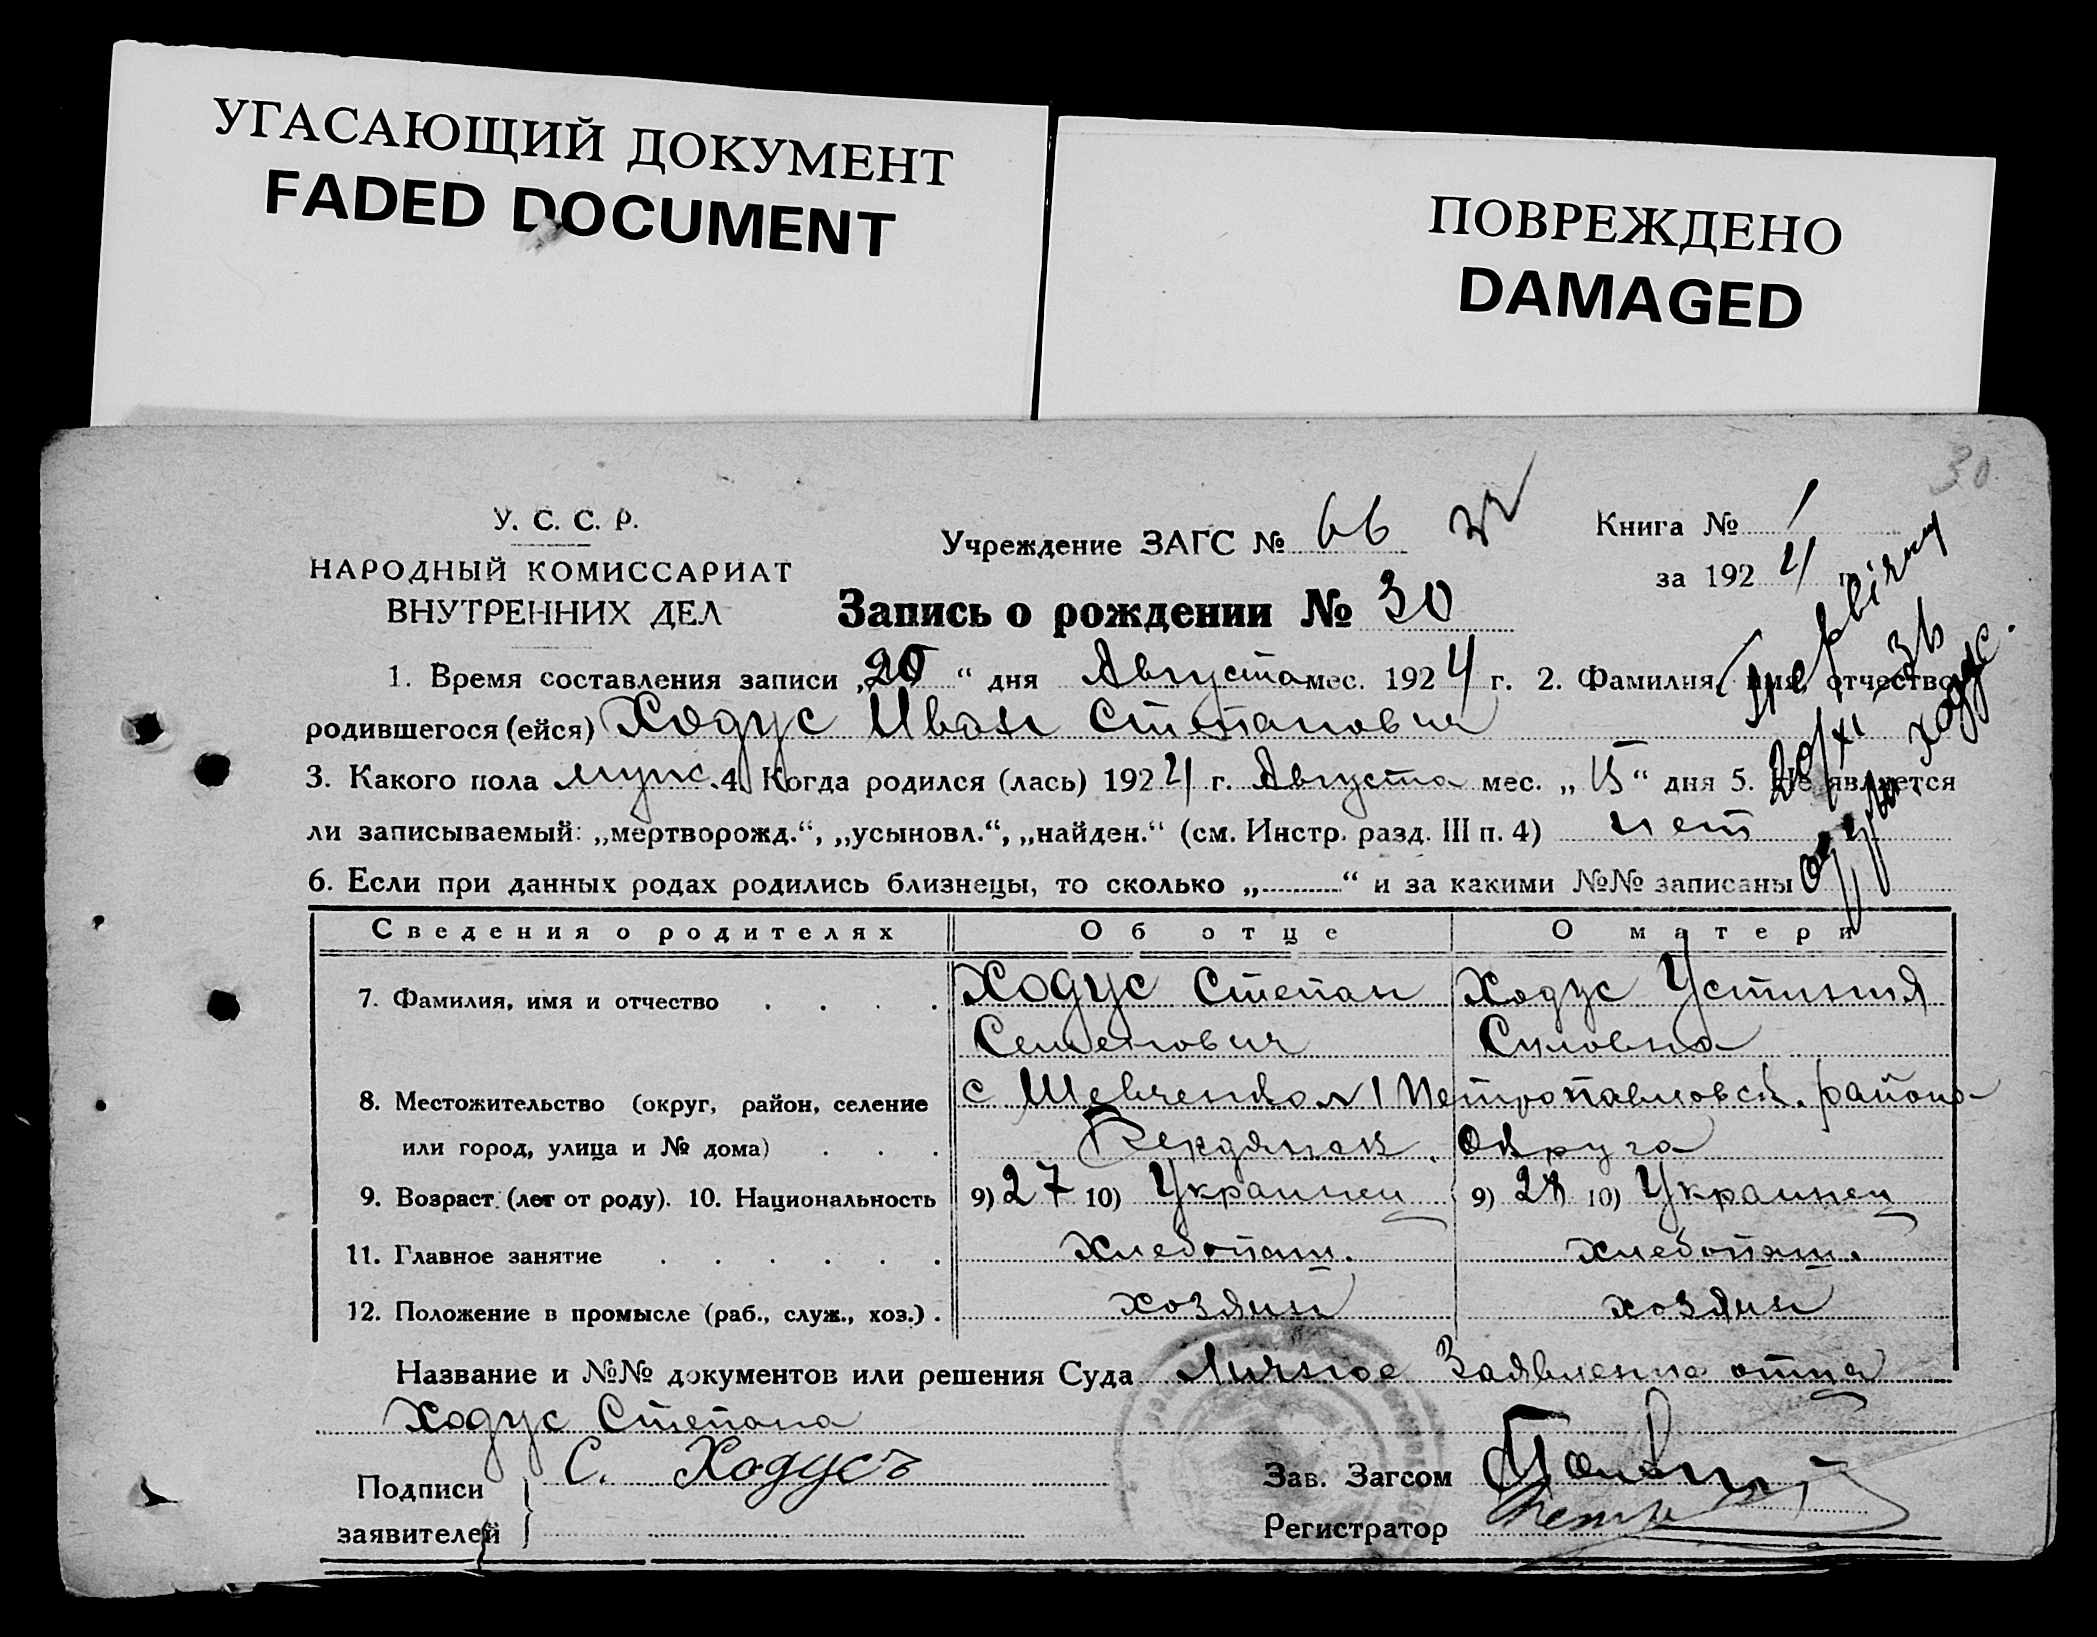 УГАСАЮЩИЙ ДОКУМЕНТ
FADED DOCUMENT
ПОВРЕЖДЕНО
DAMAGED
30
У. С. С. Р.
НАРОДНЫЙ КОМИССАРИАТ
ВНУТРЕННИХ ДЕЛ
Учреждение ЗАГС № 66
Книга № 1
за 1924 г.
Запись о рождении № 30
1. Время составления записи „20“ дня Августа мес. 1924 г. 2. Фамилия, имя, отчество
родившегося (ейся) Ходус Иван Степанович
3. Какого пола мужс. 4. Когда родился (лась) 1924 г. Августа мес. „15“ дня 5. Не является
ли записываемый: „мертворожд.“, „усыновл.“, „найден.“ (см. Инстр. разд. III п. 4) нет
6. Если при данных родах родились близнецы, то сколько „..........“ и за какими №№ записаны
Сведения о родителях Об отце О матери
7. Фамилия, имя и отчество . . . . Ходус Степан Ходус Устиния
Семенович Суловна
8. Местожительство (округ, район, селение с Шевченко №1 Петропавловск. района
или город, улица и № дома) . . . Бердянск. Округа
9. Возраст (лет от роду). 10. Национальность 9) 27 10) Украинец 9) 28 10) Украинец
11. Главное занятие . . . . . . Хлебопаш. хлебопаш.
12. Положение в промысле (раб., служ., хоз.) . хозяин хозяин
Название и №№ документов или решения Суда Личное Заявление отца
Ходус Степана
Подписи С. Ходусъ
заявителей
Зав. Загсом
Регистратор